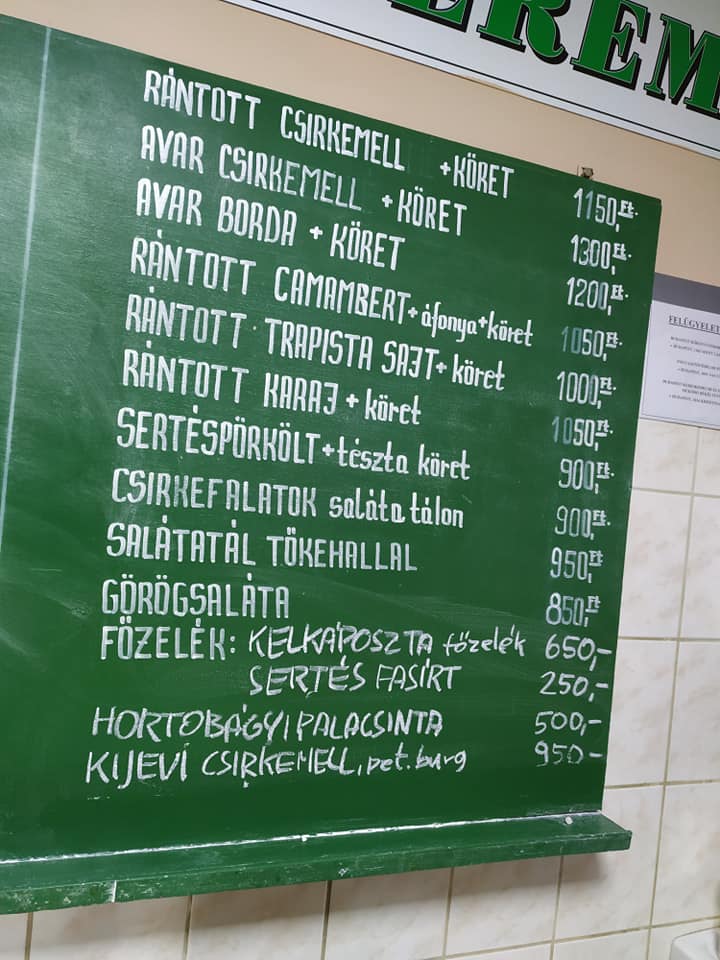 EREM
RÁNTOTT CSIRKEMELL +KÖRET 1150,Ft.
AVAR CSIRKEMELL + KÖRET 1300,Ft.
AVAR BORDA + KÖRET 1200,Ft.
RÁNTOTT CAMAMBERT+áfonya+köret 1050,Ft.
RÁNTOTT TRAPISTA SAJT+ köret 1000,Ft.
RÁNTOTT KARAJ + köret 1050,Ft.
SERTÉSPÖRKÖLT+tészta köret 900,Ft.
CSIRKEFALATOK saláta tálon 900,Ft.
SALÁTATÁL TŐKEHALLAL 950,Ft
GÖRÖGSALÁTA 850,Ft
FŐZELÉK: KELKÁPOSZTA főzelék 650,-
SERTÉS FASÍRT 250,-
HORTOBÁGYI PALACSINTA 500,-
KIJEVI CSIRKEMELL, pet. burg 950-
FELÜGYELET